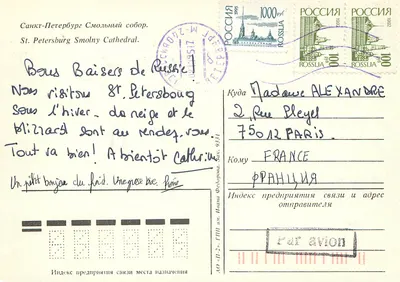 Санкт-Петербург Смольный собор.
St. Petersburg Smolny Cathedral.
Bons Baisers de Russie!
Nous visitons St. Petersbourg
sous l'hiver. La neige et le
blizzard sont au rendez-vous.
Tout va bien! A bientôt Catherine
Un petit bonjour du froid.
РОССИЯ
1000
ROSSIJA
РОССИЯ
100
ROSSIJA
РОССИЯ
100
ROSSIJA
Куда
Madame ALEXANDRE
2, Rue Pleyel
75012 PARIS.
Кому
FRANCE
ФРАНЦИЯ
Индекс предприятия связи и адрес
отправителя
Par avion
Индекс предприятия связи места назначения